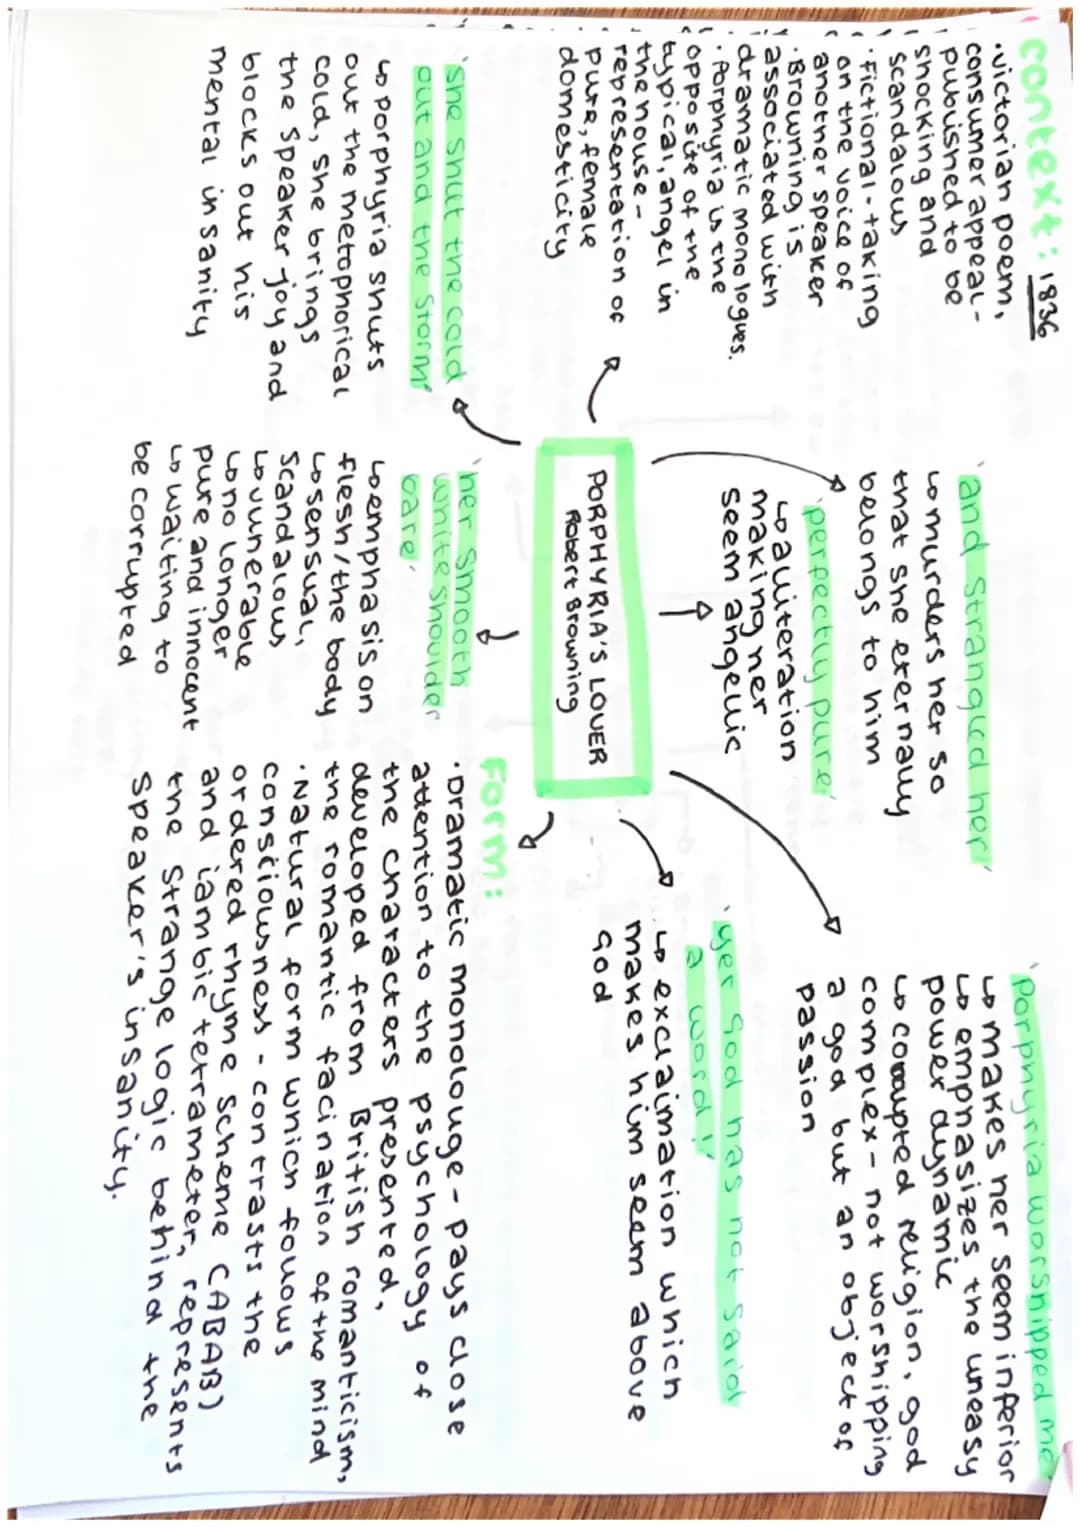 context: 1836
·victorian poem,
consumer appeal -
published to be
shocking and
scandalous
·fictional - taking
on the voice of
another speaker
·Browning is
associated with
dramatic monologues.
·Porphyria is the
opposite of the
typical, angel in
the house -
representation of
pure, female
domesticity
'and strangled her'
↳ murders her so
that she eternally
belongs to him
'perfectly pure'
↳ alliteration
making her
seem angelic
'Porphyria worshipped me'
↳ makes her seem inferior
↳ emphasizes the uneasy
power dynamic
↳ corrupted religion, god
complex - not worshipping
a god but an object of
passion
PORPHYRIA'S LOVER
Robert Browning
'yer God has not said
a word!'
↳ exclaimation which
makes him seem above
God
'she shut the cold
out and the storm'
↳ porphyria shuts
out the metophorical
cold, she brings
the speaker joy and
blocks out his
mental insanity
'her smooth
white shoulder
bare'
↳ emphasis on
flesh/the body
↳ sensual,
scandalous
↳ vunerable
↳ no longer
pure and innocent
↳ waiting to
be corrupted
Form:
·Dramatic monolouge - pays close
attention to the psychology of
the characters presented,
developed from British romanticism,
the romantic facination of the mind
·Natural form which follows
consciousness - contrasts the
ordered rhyme scheme (ABAB)
and iambic tetrameter, represents
the strange logic behind the
speaker's insanity.